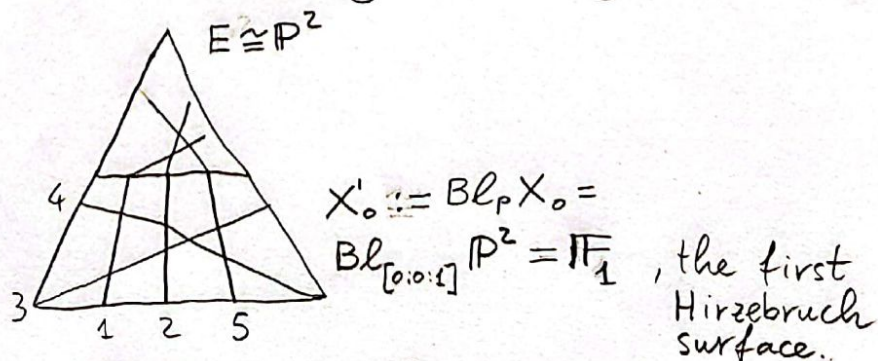 E ≅ ℙ²
4
X'₀ := Bℓ_P X₀ =
Bℓ_[0:0:1] ℙ² = 𝔽₁ , the first
Hirzebruch
surface.
3
1 2 5